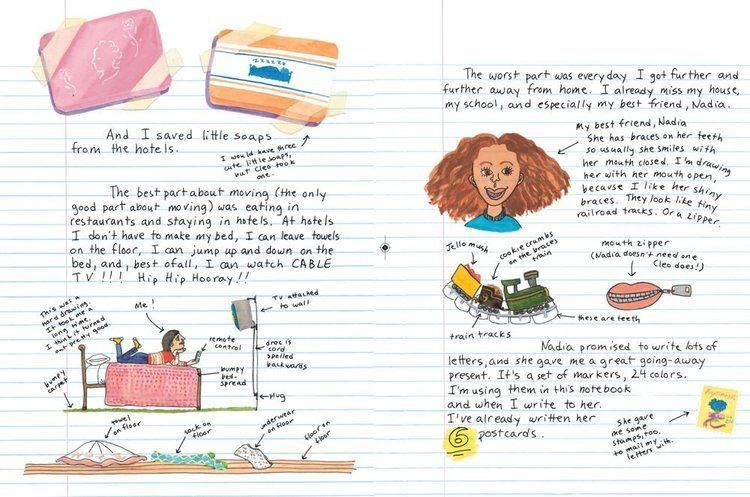 zzzzzz
And I saved little soaps
from the hotels.
I would have three
cute little soaps,
but Cleo took
one.
The best part about moving (the only
good part about moving) was eating in
restaurants and staying in hotels. At hotels
I don't have to make my bed, I can leave towels
on the floor, I can jump up and down on the
bed, and, best of all, I can watch CABLE
TV!!!! Hip Hip Hooray!!
This was a
hard drawing.
It took me a
long time.
I think it turned
out pretty good
Me!
TV attached
to wall
remote
control
droc is
cord
spelled
backwards
bumpy
carpet
bumpy
bed-
spread
plug
towel
on floor
sock on
floor
underwear
on floor
floor on
floor
The worst part was everyday I got further and
further away from home. I already miss my house,
my school, and especially my best friend, Nadia.
My best friend, Nadia
She has braces on her teeth
so usually she smiles with
her mouth closed. I'm drawing
her with her mouth open,
because I like her shiny
braces. They look like tiny
railroad tracks. Or a zipper.
Jello mush
cookie crumbs
on the braces
train
mouth zipper
(Nadia doesn't need one.
Cleo does!)
train tracks
these are teeth
Nadia promised to write lots of
letters, and she gave me a great going-away
present. It's a set of markers, 24 colors.
I'm using them in this notebook
and when I write to her.
I've already written her
6 postcards.
She gave
me some
stamps, too.
to mail my
letters with.